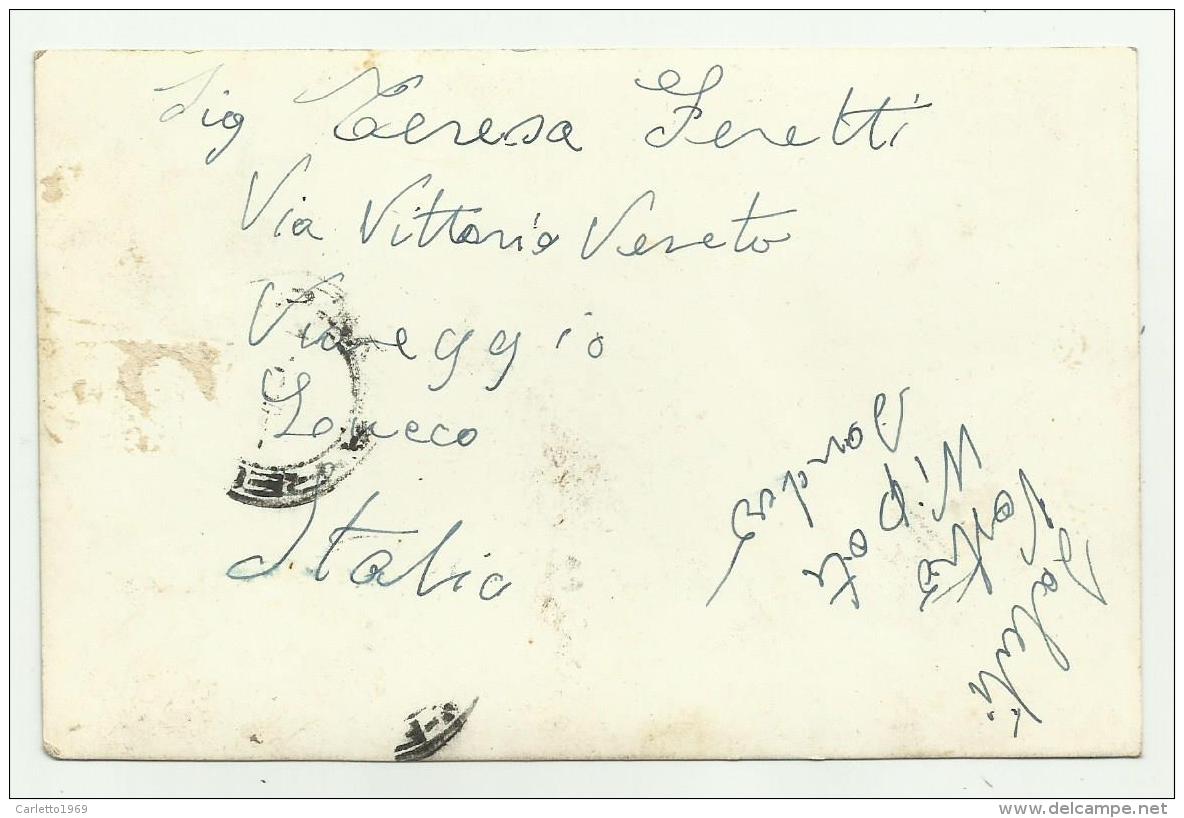 Sig Teresa Feretti
Via Vittorio Veneto
Viareggio
Italia
Saluti
Vostro
Nipote
Carletto1969
www.delcampe.net